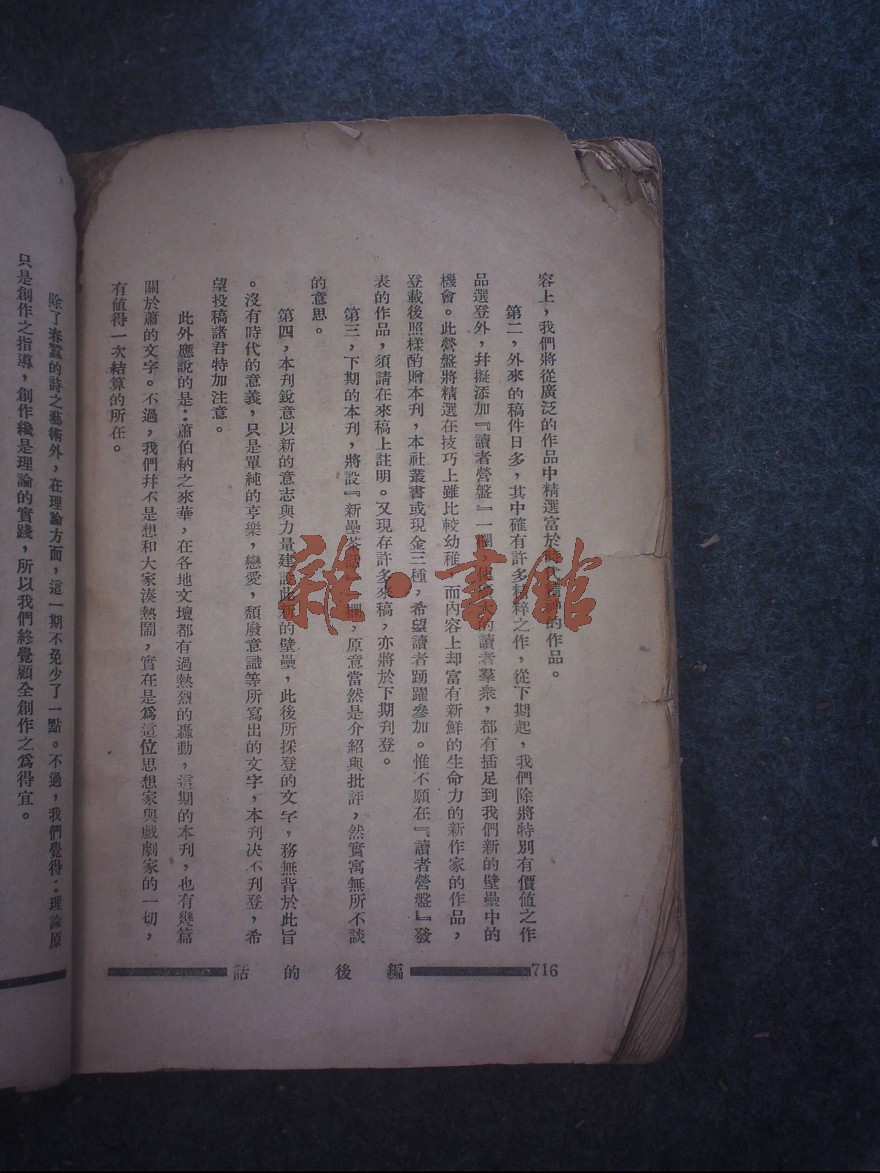 容上，我們將從廣泛的作品中精選富於時代精神的作品。
第二，外來的稿件日多，其中確有許多精粹之作，從下期起，我們除將特別有價値之作
品選登外，幷擬添加『讀者營盤』一欄，使廣大的讀者羣衆，都有插足到我們新的壁壘中的
機會。此營盤將精選在技巧上雖比較幼稚，而內容上却富有新鮮的生命力的新作家的作品，
登載後照樣酌贈本刊，本社叢書或現金三種，希望讀者踴躍參加。惟不願在『讀者營盤』發
表的作品，須請在來稿上註明。又現存許多來稿，亦將於下期刊登。
第三，下期的本刊，將設『新壘茶話』一欄，原意當然是介紹與批評，然實寓無所不談
的意思。
第四，本刊銳意以新的意志與力量建設此新的壁壘，此後所採登的文字，務無背於此旨
。沒有時代的意義，只是單純的享樂，戀愛，頹廢意識等所寫出的文字，本刊決不刊登，希
望投稿諸君特加注意。
此外應說的是：蕭伯納之來華，在各地文壇都有過熱烈的轟動，這期的本刊，也有幾篇
關於蕭的文字。不過，我們幷不是想和大家湊熱鬧，實在是爲這位思想家與戲劇家的一切，
有値得一次結算的所在。
716
編後的話
除了春蠶的詩之藝術外，在理論方面，這一期不免少了一點。不過，我們覺得：理論原
只是創作之指導，創作纔是理論的實踐，所以我們終覺顧全創作之爲得宜。
雜·書館